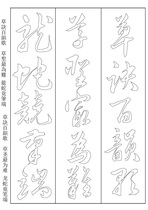 草訣百韻歌
草聖最為難
龍蛇競筆端
草訣百韻歌 草聖最為難 龍蛇競筆端
草诀百韵歌 草圣最为难 龙蛇竞笔端